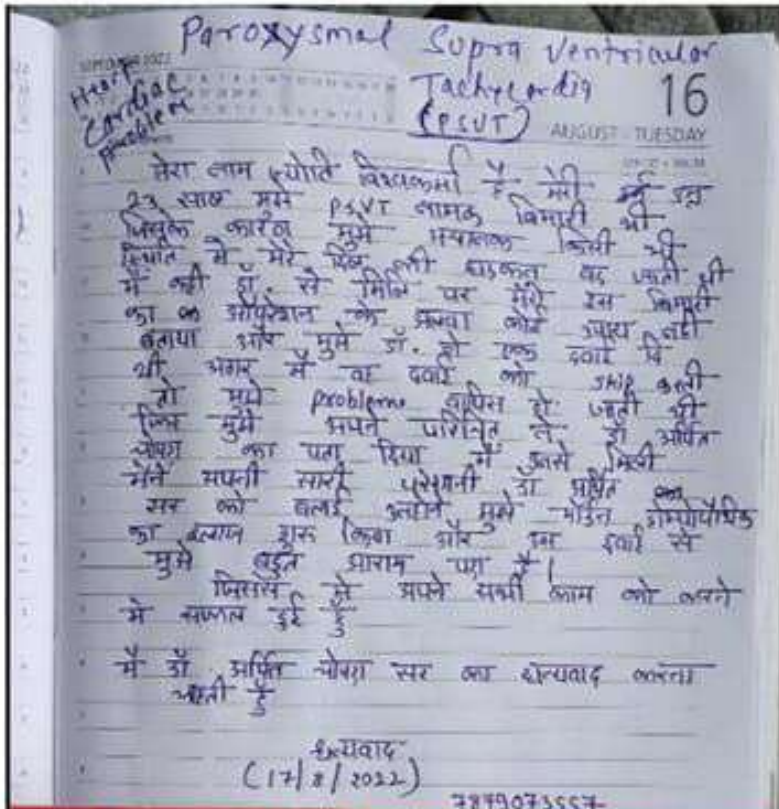 Paroxysmal Supra Ventricular
Tachycardia
(PSVT)
Heart
Cardiac
problem
SEPTEMBER 2022
16
AUGUST - TUESDAY
मेरा नाम ज्योति विश्वकर्मा है मेरी उम्र
23 साल मुझे PSVT नामक बिमारी थी
जिसके कारण मुझे अचानक किसी भी
स्थिति मे मेरे दिल की धड़कन बढ़ जाती थी
मैं कही डॉ. से मिलि पर मेरी इस बिमारी
का ऑपरेशन के अलवा कोई उपाय नही
बताया और मुझे डॉ. हो एक दवाई दि
थी अगर मैं वा दवाई को skip करती
तो मुझे problem वापिस हो जाती थी
फिर मुझे अपने परिचित ने डॉ अर्पित
चोपड़ा का पता दिया मैं उनसे मिली
मैंने अपनी सारी परेशानी डॉ अर्पित
सर को बताई उन्होंने मुझे मॉडन होम्योपैथिक
का इलाज शुरू किया और इस दवाई से
मुझे बहुत आराम पडा है।
जिससे मे अपने सभी काम को करने
मे सफल हुई हूँ
मैं डॉ. अर्पित चोपड़ा सर का धन्यवाद करना
चाहती हूँ
धन्यवाद
(17/8/2022)
7879073557